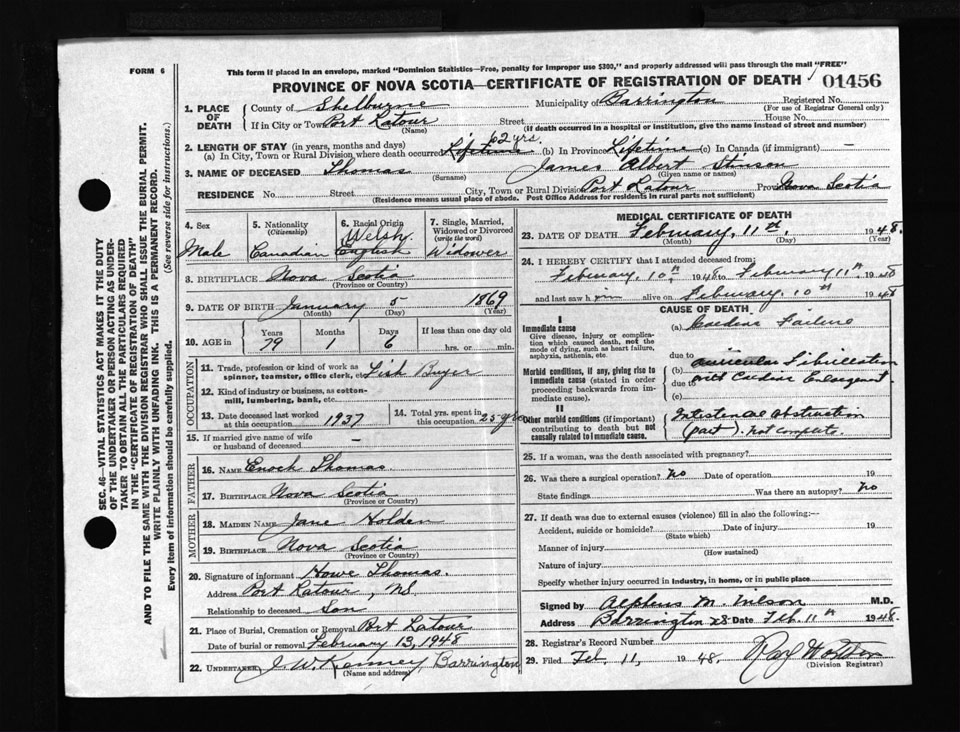 FORM 6
This form if placed in an envelope, marked "Dominion Statistics—Free, penalty for improper use $300," and properly addressed will pass through the mail "FREE"
PROVINCE OF NOVA SCOTIA—CERTIFICATE OF REGISTRATION OF DEATH 01456
SEC. 46—VITAL STATISTICS ACT MAKES IT THE DUTY
OF THE UNDERTAKER OR PERSON ACTING AS UNDER-
TAKER TO OBTAIN ALL THE PARTICULARS REQUIRED
IN THE "CERTIFICATE OF REGISTRATION OF DEATH"
AND TO FILE THE SAME WITH THE DIVISION REGISTRAR WHO SHALL ISSUE THE BURIAL PERMIT.
WRITE PLAINLY WITH UNFADING INK. THIS IS A PERMANENT RECORD.
Every item of information should be carefully supplied. (See reverse side for instructions.)
1. PLACE OF DEATH
County of Shelburne Municipality of Barrington Registered No.
(For use of Registrar General only)
If in City or Town Port Latour Street House No.
(Name) (If death occurred in a hospital or institution, give the name instead of street and number)
2. LENGTH OF STAY (in years, months and days) 62 yrs.
(a) In City, Town or Rural Division where death occurred Lifetime (b) In Province Lifetime (c) In Canada (if immigrant) —
3. NAME OF DECEASED Thomas James Albert Stinson
(Surname) (Given name or names)
RESIDENCE No. Street City, Town or Rural Division Port Latour Province Nova Scotia
(Residence means usual place of abode. Post Office Address for residents in rural parts not sufficient)
4. Sex Male
5. Nationality (Citizenship) Canadian
6. Racial Origin Welsh English
7. Single, Married, Widowed or Divorced (write the word) Widower
8. BIRTHPLACE Nova Scotia
(Province or Country)
9. DATE OF BIRTH January 5 1869
(Month) (Day) (Year)
10. AGE in Years 79 Months 1 Days 6 If less than one day old
hrs. or min.
OCCUPATION
11. Trade, profession or kind of work as spinner, teamster, office clerk, etc. Fish Buyer
12. Kind of industry or business, as cotton-mill, lumbering, bank, etc.
13. Date deceased last worked at this occupation 1937
14. Total yrs. spent in this occupation 25 yrs
15. If married give name of wife or husband of deceased —
FATHER
16. NAME Enoch Thomas
17. BIRTHPLACE Nova Scotia
(Province or Country)
MOTHER
18. MAIDEN NAME Jane Holden
19. BIRTHPLACE Nova Scotia
(Province or Country)
20. Signature of informant Howe Thomas.
Address Port Latour, NS.
Relationship to deceased Son
21. Place of Burial, Cremation or Removal Port Latour
Date of burial or removal February 13, 1948
22. UNDERTAKER J. W. Kenney Barrington
(Name and address)
MEDICAL CERTIFICATE OF DEATH
23. DATE OF DEATH February, 11th, 1948.
(Month) (Day) (Year)
24. I HEREBY CERTIFY that I attended deceased from:
February, 10th, 1948 to February 11th 1948
and last saw him alive on February, 10th 1948
CAUSE OF DEATH
I
Immediate cause
Give disease, injury or complication which caused death, not the mode of dying, such as heart failure, asphyxia, asthenia, etc.
(a) Cardiac Failure
due to
Morbid conditions, if any, giving rise to immediate cause (stated in order proceeding backwards from immediate cause).
(b) auricular Fibrillation
due to with Cardiac Enlargement.
(c)
II
Other morbid conditions (if important) contributing to death but not causally related to immediate cause.
Intestinal obstruction
(part). Not complete.
25. If a woman, was the death associated with pregnancy?
26. Was there a surgical operation? No Date of operation 19
State findings Was there an autopsy? No
27. If death was due to external causes (violence) fill in also the following:—
Accident, suicide or homicide? Date of injury 19
(State which)
Manner of injury
(How sustained)
Nature of injury
Specify whether injury occurred in industry, in home, or in public place
Signed by Alphus M. Wilson M.D.
Address Barrington NS Date Feb. 11th 1948.
28. Registrar's Record Number
29. Filed Feb, 11, 1948.
(Division Registrar)